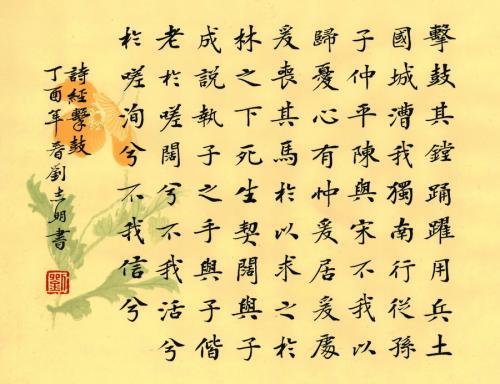 擊鼓其鏜踊躍用兵土
國城漕我獨南行從孫
子仲平陳與宋不我以
歸憂心有忡爰居爰處
爰喪其馬於以求之於
林之下死生契闊與子
成說執子之手與子偕
老於嗟闊兮不我活兮
於嗟洵兮不我信兮
詩經擊鼓
丁酉年春劉志明書
劉